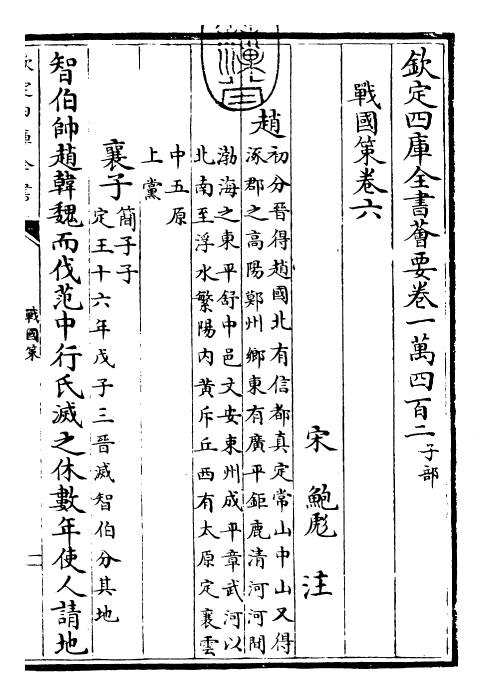 欽定四庫全書薈要卷一萬四百二子部
戰國策卷六
宋 鮑彪 注
趙初分晉得趙國北有信都真定常山中山又得
涿郡之高陽鄚州鄉東有廣平鉅鹿清河河間
渤海之東平舒中邑文安東州成平章武河以
北南至浮水繁陽內黃斥丘西有太原定襄雲
中五原
上黨
襄子簡子子
定王十六年戊子三晉滅智伯分其地
智伯帥趙韓魏而伐范中行氏滅之休數年使人請地
欽定四庫全書
戰國策